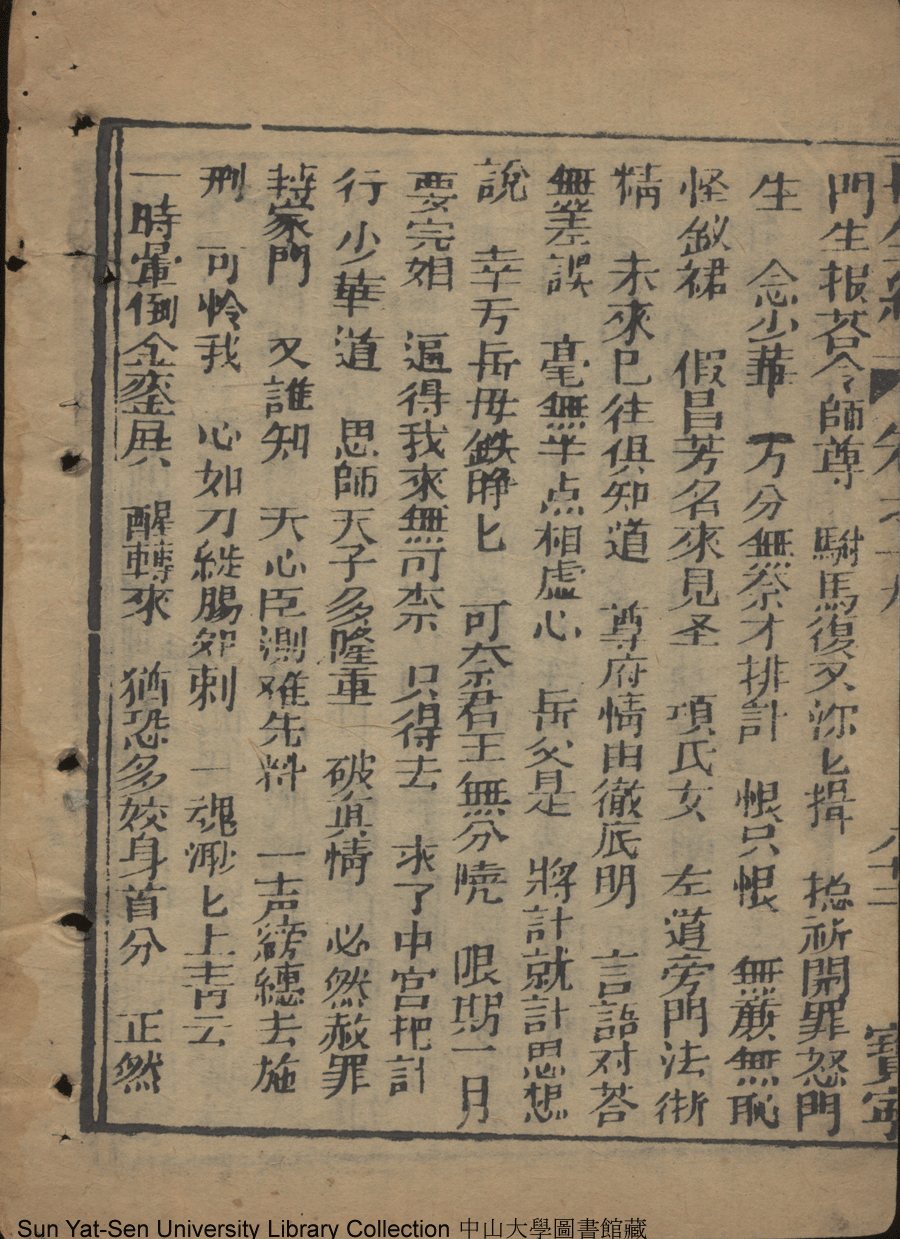 門生报荅令師尊 駙馬復又深匕揖 摠祈開罪恕門
生 念少華 万分無奈才排計 恨只恨 無蔴無恥
怪釵裙 假昌芳名來見圣 項氏女 左道旁門法術
精 未來已往俱知道 尊府情由徹底明 言語对荅
無差誤 毫無半点相虛心 岳父是 將計就計思想
說 幸亐岳毋鉄睁匕 可奈君王無分曉 限期一月
要完姻 逼得我來無可柰 只得去 求了中宮把計
行 少華道 思師天子多隆重 破真情 必然赦罪
家門 又誰知 天心臣測难先料 一声綁縛去施
刑 可怜我 心如刀 腸如刺 一魂渺匕上青云
一時暈倒金鑾 醒轉來 猶恐多姣身首分 正然
寳寧
Sun Yat-Sen University Library Collection 中山大學圖書館藏